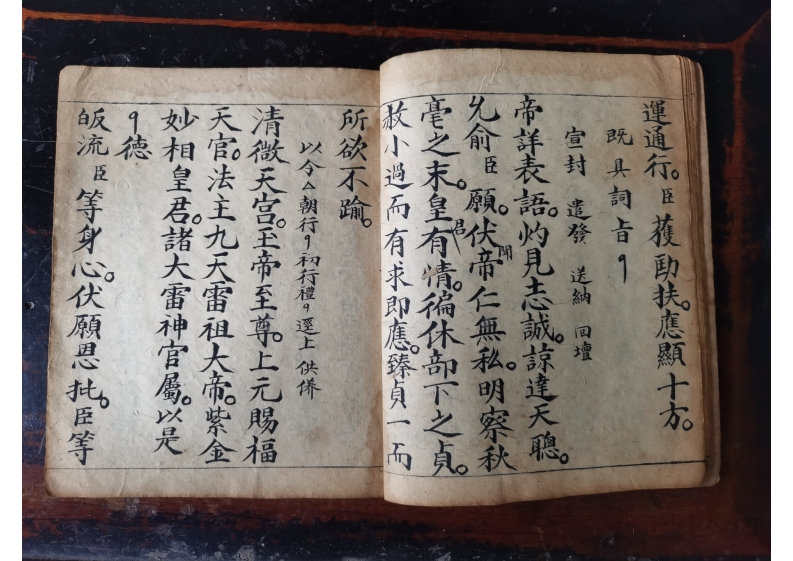 運通行。臣獲勛扶。應顯十方。
既具詞旨
宣封 遣發 送納 回壇
帝詳表語。灼見志誠。諒達天聰。
允俞臣願。伏聞帝仁無私。明察秋
毫之末。皇君有情。徧休部下之貞。
赦小過而有求即應。臻貞一而
所欲不踰。
以今厶朝行 初行禮 逕上 供併
清微天宫。玉帝至尊。上元賜福
天官。法主九天雷祖大帝。紫金
妙相皇君。諸大雷神官屬。以是
德
皈流臣等身心。伏願恩批。臣等